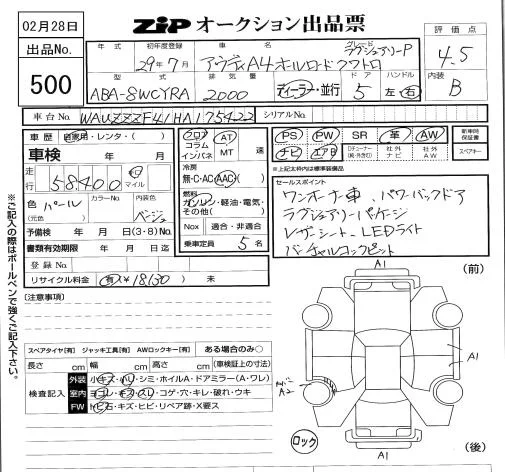 02月28日
出品No.
500
ZIP オークション出品票
年式
初年度登録
29年7月
車名
アウディA4オールロードクワトロ
グレード
ラグジュアリーP
評価点
4.5
型式
ABA-8WCYRA
排気量
2000
ディーラー・並行
ドア
5
ハンドル
左・右
内装
B
車台No.
WAUZZZF41HA175422
シリアルNo.
車歴
自家用・レンタ・( )
車検 年 月
走行
58400
km
マイル
色
パール
(元色)
カラーNo.
内装色
ベージュ
予備検 年 月 日(3・8)No.
書類有効期限 年 月 日迄
登録No.
リサイクル料金 有 ¥18130 未
フロア
コラム
インパネ
AT
MT
速
冷房
無・C・AC・AAC( )
燃料
ガソリン・軽油・電気・
その他( )
Nox 適合・非適合
乗車定員 5名
PS
PW
SR
革
AW
ナビ
エアB
Dチューナー
社外
ナビ
社外
AW
新車時
保証書
スペアキー
※上記太枠内は標準装備品
セールスポイント
ワンオーナー車、パワーバックドア
ラグジュアリーパッケージ
レザーシート LEDライト
バーチャルコックピット
※ご記入の際はボールペンで強くご記入下さい。
[注意事項]
スペアタイヤ[有] ジャッキ工具[有] AWロックキー[有] ある場合のみ○
長さ cm 幅 cm 高さ cm (車検証上の寸法)
検査記入
外装 小キズ・小凹・シミ・ホイルA・ドアミラー(A・ワレ)
室内 ヨゴレ・キズ・スレ・コゲ・穴・キレ・破れ・ウキ
FW トビ石・キズ・ヒビ・リペア跡・X要ス
A1
(前)
A1
A2
A1
ロック
(後)